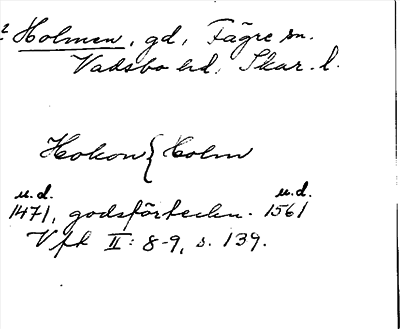 ? Holmen, gd, Fägre sn.
Vadsbo hd, Skar. l.
Hokon { Holm
u.d. u.d.
1471, godsförteckn. 1561
Vfk II: 8-9, s. 139.